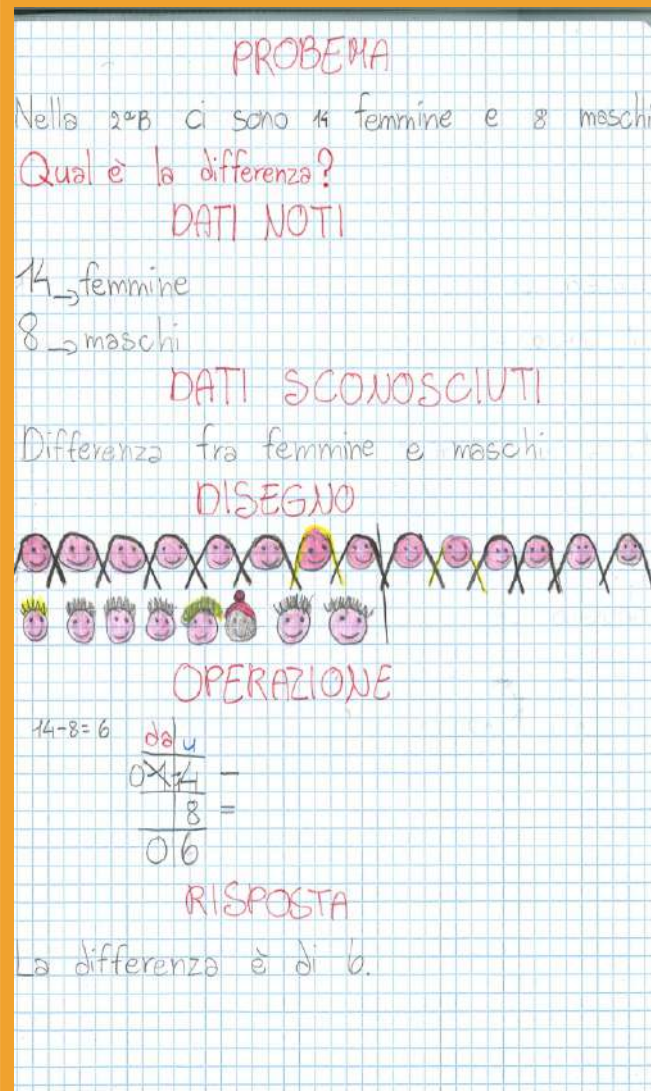 PROBEMA
Nella 2ªB ci sono 14 femmine e 8 maschi
Qual è la differenza?
DATI NOTI
14→femmine
8→maschi
DATI SCONOSCIUTI
Differenza fra femmine e maschi
DISEGNO
OPERAZIONE
14-8=6
da u
0 1 14 -
8 =
0 6
RISPOSTA
La differenza è di 6.